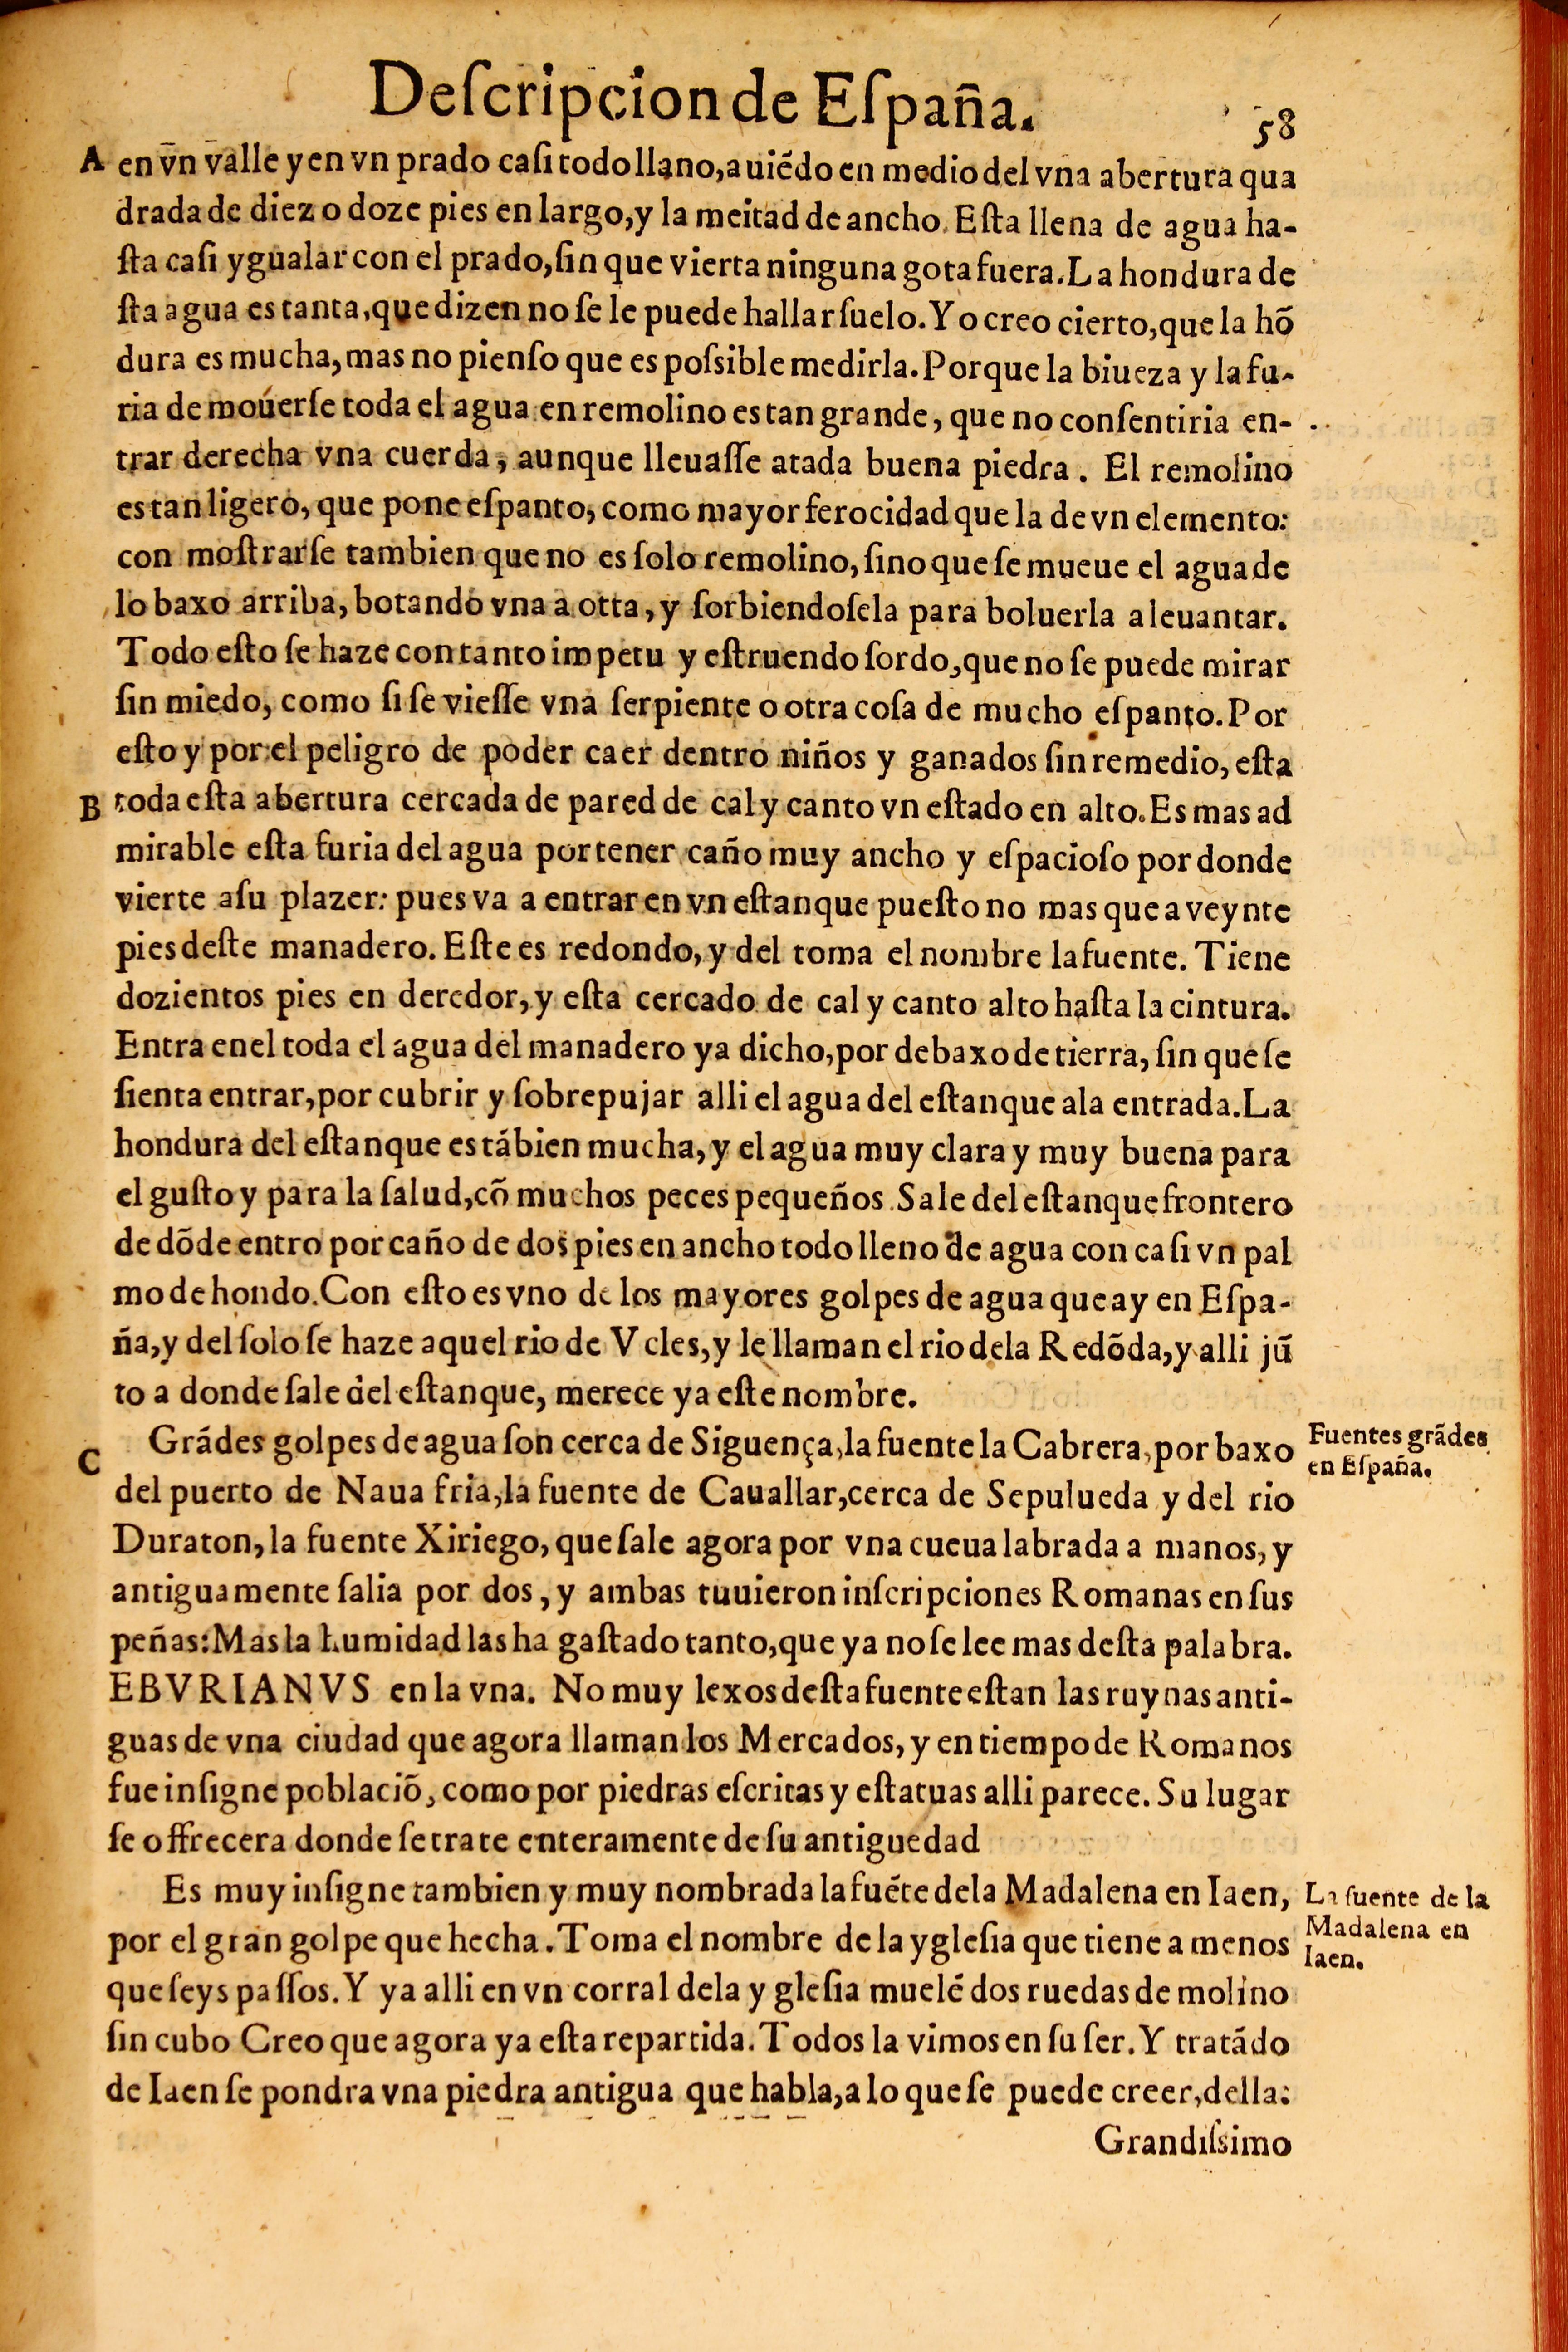 Deſcripcion de Eſpaña.
58
A en vn valle y en vn prado caſi todo llano, auiẽdo en medio del vna abertura qua
drada de diez o doze pies en largo, y la meitad de ancho. Eſta llena de agua ha-
ſta caſi ygualar con el prado, ſin que vierta ninguna gota fuera. La hondura de
ſta agua es tanta, que dizen no ſe le puede hallar ſuelo. Yo creo cierto, que la hõ
dura es mucha, mas no pienſo que es poſsible medirla. Porque la biueza y la fu-
ria de mouerſe toda el agua en remolino es tan grande, que no conſentiria en-
trar derecha vna cuerda, aunque lleuaſſe atada buena piedra. El remolino
es tan ligero, que pone eſpanto, como mayor ferocidad que la de vn elemento:
con moſtrarſe tambien que no es ſolo remolino, ſino que ſe mueue el agua de
lo baxo arriba, botando vna a otta, y ſorbiendoſela para boluerla a leuantar.
Todo eſto ſe haze con tanto impetu y eſtruendo ſordo, que no ſe puede mirar
ſin miedo, como ſi ſe vieſſe vna ſerpiente o otra coſa de mucho eſpanto. Por
eſto y por el peligro de poder caer dentro niños y ganados ſin remedio, eſta
B toda eſta abertura cercada de pared de cal y canto vn eſtado en alto. Es mas ad
mirable eſta furia del agua por tener caño muy ancho y eſpacioſo por donde
vierte aſu plazer: pues va a entrar en vn eſtanque pueſto no mas que a veynte
pies deſte manadero. Eſte es redondo, y del toma el nombre la fuente. Tiene
dozientos pies en deredor, y eſta cercado de cal y canto alto haſta la cintura.
Entra enel toda el agua del manadero ya dicho, por debaxo de tierra, ſin que ſe
ſienta entrar, por cubrir y ſobrepujar alli el agua del eſtanque ala entrada. La
hondura del eſtanque es tãbien mucha, y el agua muy clara y muy buena para
el guſto y para la ſalud, cõ muchos peces pequeños. Sale del eſtanque frontero
de dõde entro por caño de dos pies en ancho todo lleno de agua con caſi vn pal
mo de hondo. Con eſto es vno de los mayores golpes de agua que ay en Eſpa-
ña, y del ſolo ſe haze aquel rio de Vcles, y le llaman el rio dela Redõda, y alli jũ
to a donde ſale del eſtanque, merece ya eſte nombre.
C Grãdes golpes de agua ſon cerca de Siguença, la fuente la Cabrera, por baxo
Fuentes grãdes
en Eſpaña.
del puerto de Naua fria, la fuente de Cauallar, cerca de Sepulueda y del rio
Duraton, la fuente Xiriego, que ſale agora por vna cueua labrada a manos, y
antiguamente ſalia por dos, y ambas tuuieron inſcripciones Romanas en ſus
peñas: Mas la humidad las ha gaſtado tanto, que ya no ſe lee mas deſta palabra.
EBVRIANVS en la vna. No muy lexos deſta fuente eſtan las ruynas anti-
guas de vna ciudad que agora llaman los Mercados, y en tiempo de Romanos
fue inſigne poblaciõ, como por piedras eſcritas y eſtatuas alli parece. Su lugar
ſe offrecera donde ſe trate enteramente de ſu antiguedad
Es muy inſigne tambien y muy nombrada la fuẽte dela Madalena en Iaen,
La fuente de la
Madalena en
Iaen.
por el gran golpe que hecha. Toma el nombre de la ygleſia que tiene a menos
que ſeys paſſos. Y ya alli en vn corral dela ygleſia muelẽ dos ruedas de molino
ſin cubo Creo que agora ya eſta repartida. Todos la vimos en ſu ſer. Y tratãdo
de Iaen ſe pondra vna piedra antigua que habla, a lo que ſe puede creer, della:
Grandiſsimo